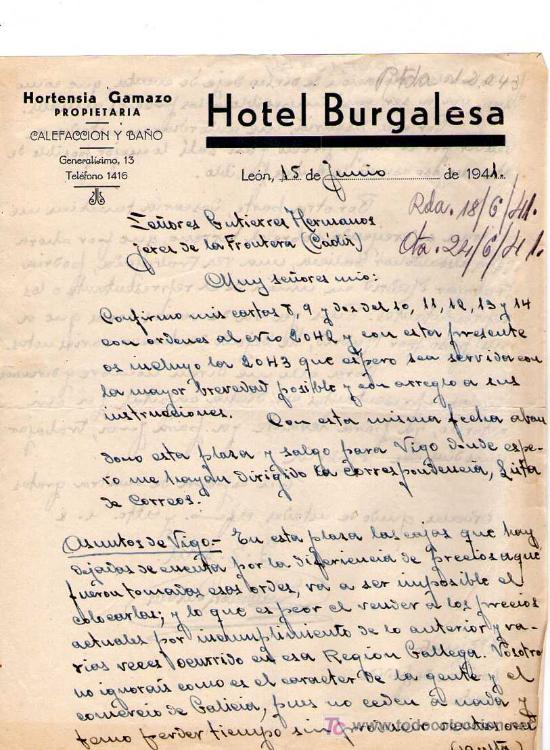 Hortensia Gamazo
PROPIETARIA
CALEFACCION Y BAÑO
Generalísimo, 13
Teléfono 1416
Hotel Burgalesa
León, 15 de Junio de 1941.
Rda. 18/6/41.
Cta. 24/6/41.
Señores Gutierrez Hermanos
Jerez de la Frontera (Cádiz)
Muy señores mio:
Confirmo mis cartas 8, 9 y dos del 10, 11, 12, 13 y 14
con ordenes al nro 2042 y con esta presente
os incluyo la 2043 que espero sea servida con
la mayor brevedad posible y con arreglo a sus
instrucciones. Con esta misma fecha aban
dono esta plaza y salgo para Vigo dinde espe-
ro me hayan dirigido la correspondencia, Lista
de Correos.
Asuntos de Vigo.- En esta plaza las cajas que hay
dejadas de cuenta por la diferiencia de precios a que
fueron tomadas esas ordes, va a ser imposible el
colocarlas; y lo que es peor el vender a los precios
actuales por incumplimiento de lo anterior y va-
rias veces ocurrido en esa Región Gallega. Vosotros
no ignorais como es el caracter de la gente y el
comercio de Galicia, pues no ceden a nada y
temo perder tiempo sin
todocoleccion